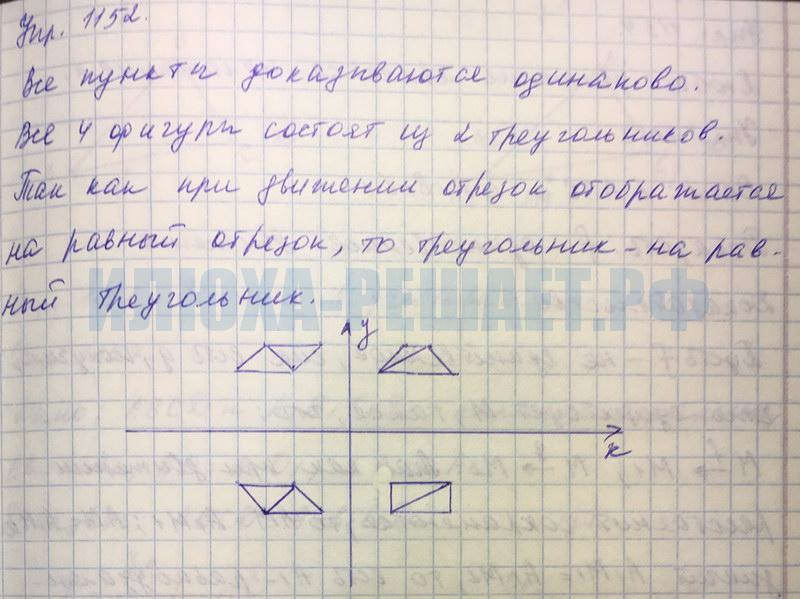 Упр. 1152.
Все пункты доказываются одинаково.
Все 4 фигуры состоят из 2 треугольников.
Так как при движении отрезок отображается
на равный отрезок, то треугольник – на рав-
ный треугольник.
ИЛЮХА-РЕШАЕТ.РФ
y
x